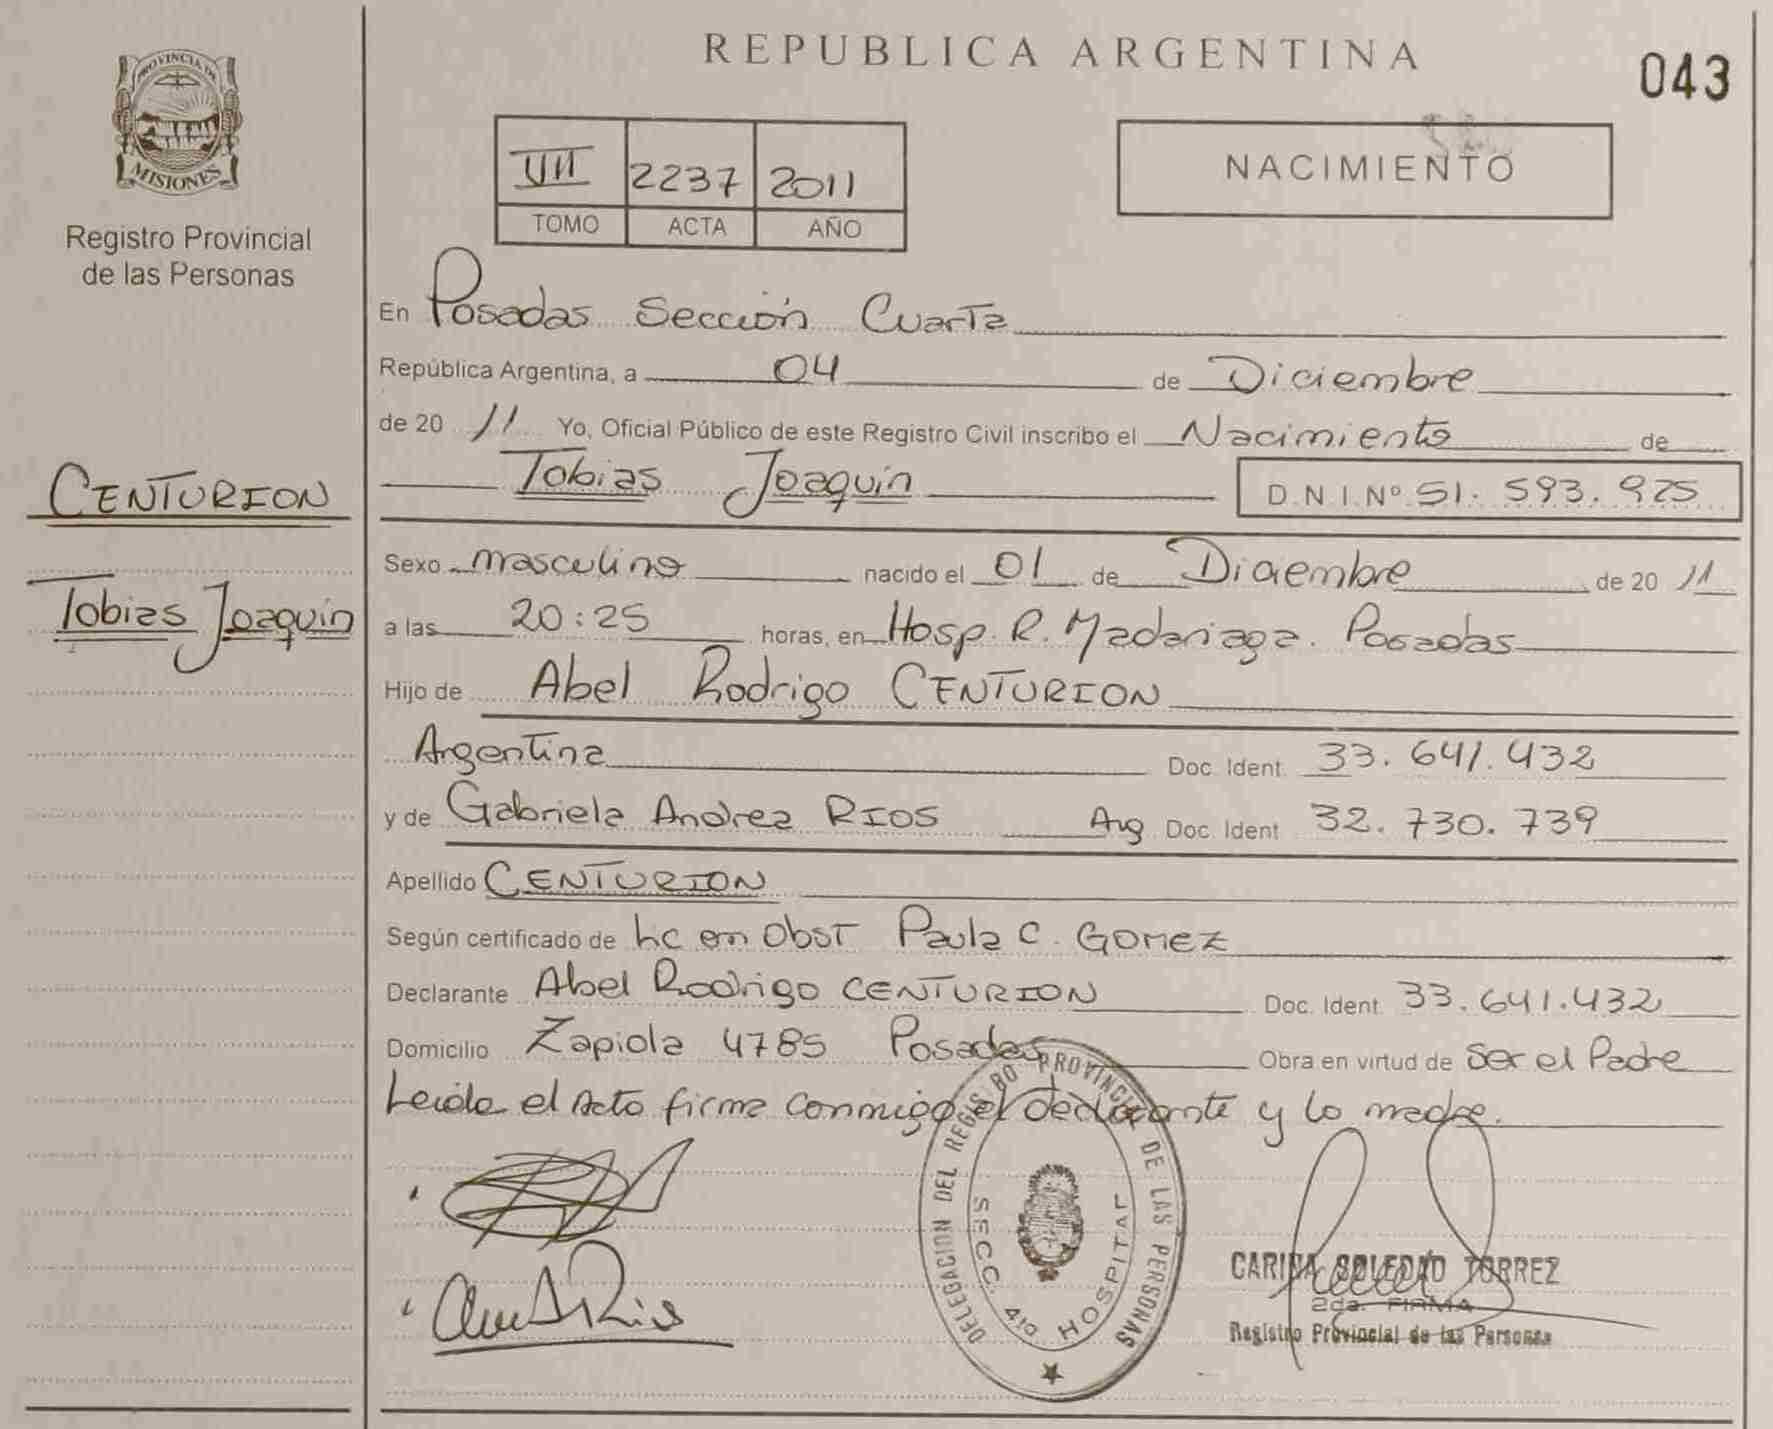 REPUBLICA ARGENTINA
043
PROVINCIA DE
MISIONES
Registro Provincial
de las Personas
VII 2237 2011
TOMO ACTA AÑO
NACIMIENTO
En Posadas Sección Cuarta
República Argentina, a 04 de Diciembre
de 20 11 Yo, Oficial Público de este Registro Civil inscribo el Nacimiento de
Tobias Joaquín D.N.I.Nº 51.593.925
CENTURION
Tobias Joaquín
Sexo masculino nacido el 01 de Diciembre de 20 11
a las 20:25 horas, en Hosp. R. Madariaga. Posadas
Hijo de Abel Rodrigo CENTURION
Argentina Doc. Ident. 33.641.432
y de Gabriela Andrea RIOS Arg Doc. Ident 32.730.739
Apellido CENTURION
Según certificado de Lic en Obst Paula C. GOMEZ
Declarante Abel Rodrigo CENTURION Doc. Ident. 33.641.432
Domicilio Zapiola 4785 Posadas Obra en virtud de Ser el Padre
Leida el Acto firma conmigo el declarante y la madre.
DELEGACION DEL REGISTRO PROVINCIAL DE LAS PERSONAS
SECC. 4ta HOSPITAL
CARINA SOLEDAD TORREZ
2da. FIRMA
Registro Provincial de las Personas